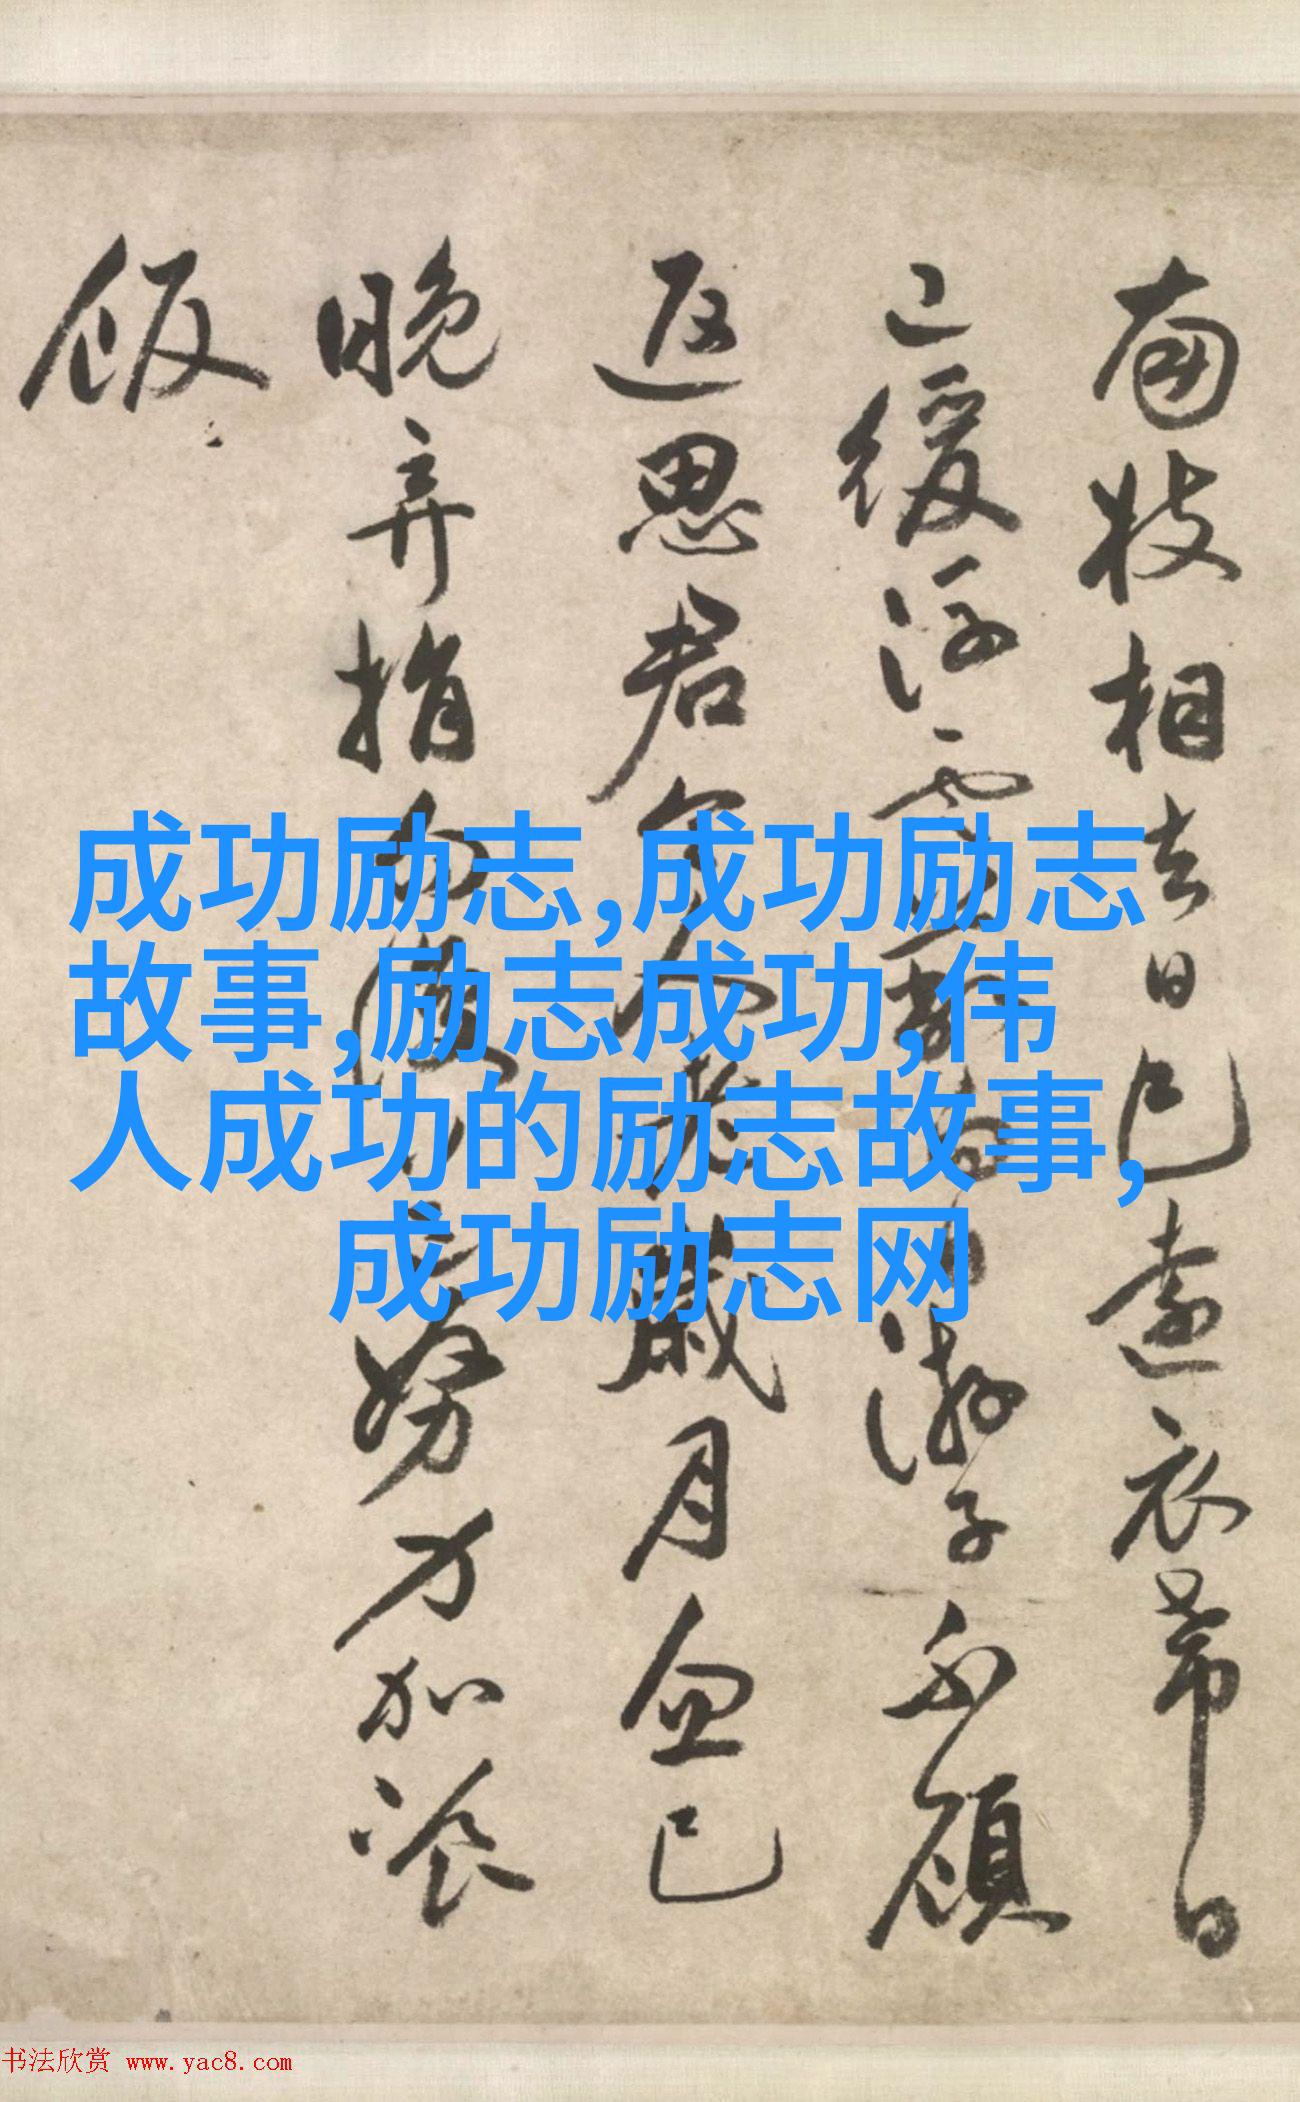 南枝相去日已遠衣帶日
已緩浮雲蔽白日游子不顧
返思君令人老歲月忽已
晚弃捐勿復道努力加飡
飯
成功励志,成功励志
故事,励志成功,伟
人成功的励志故事,
成功励志网
书法欣赏 www.yac8.com